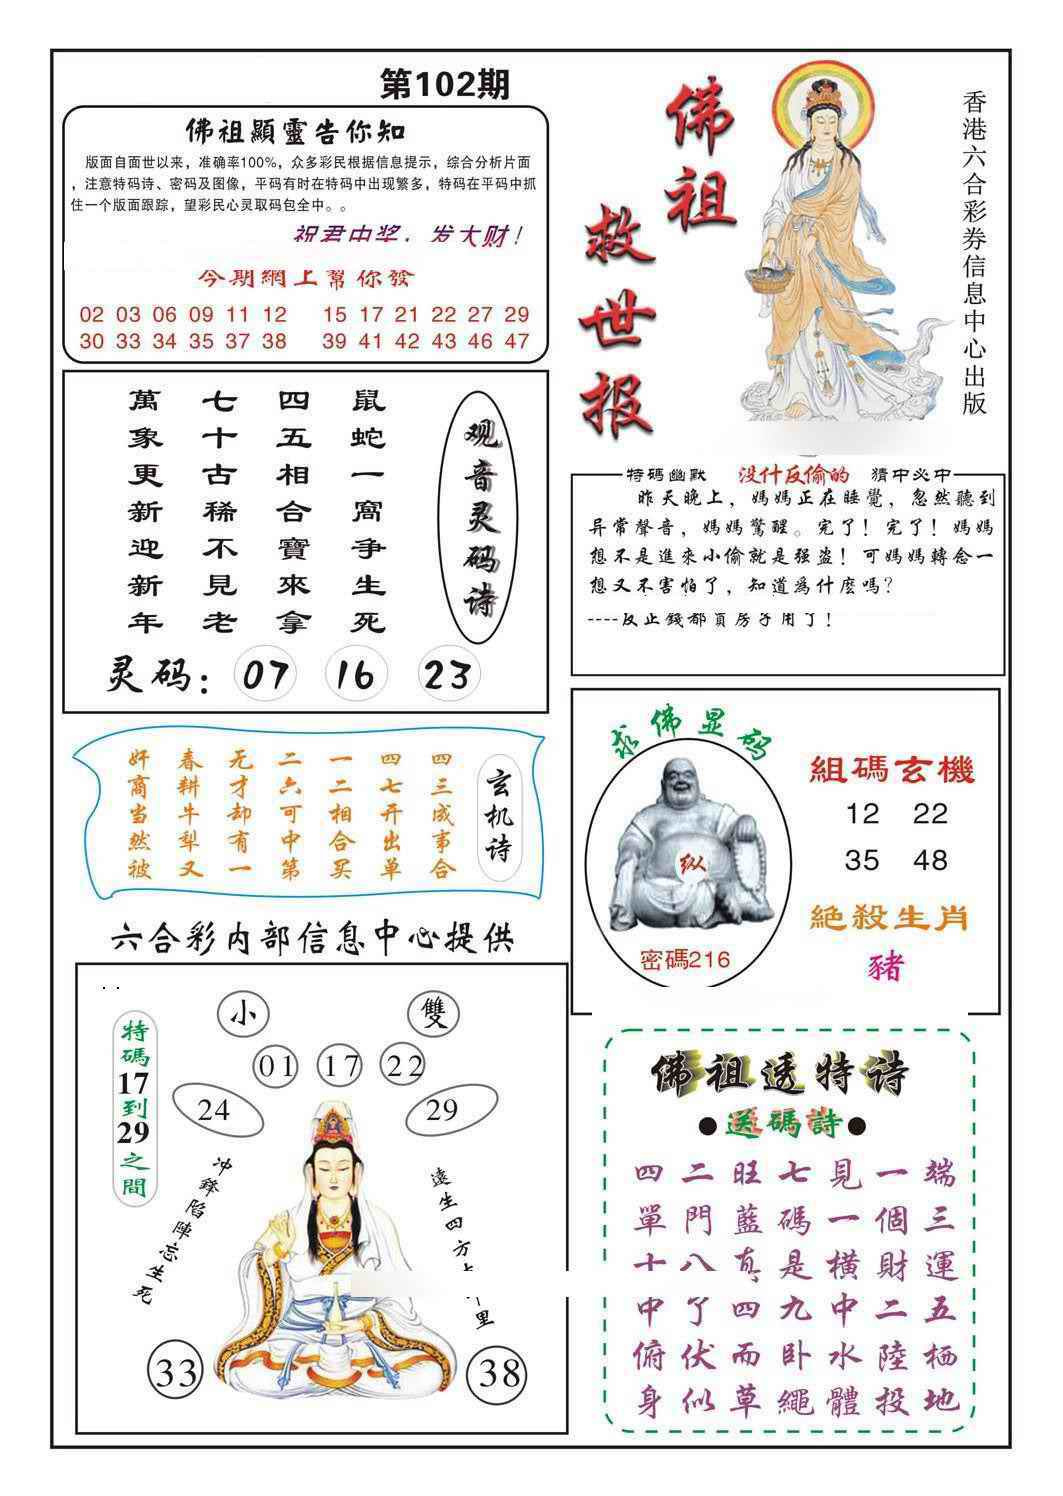 第102期
佛祖顯靈告你知
版面自面世以来，准确率100%，众多彩民根据信息提示，综合分析片面
，注意特码诗、密码及图像，平码有时在特码中出现繁多，特码在平码中抓
住一个版面跟踪，望彩民心灵取码包全中。。
祝君中奖，发大财！
今期網上幫你發
02 03 06 09 11 12 15 17 21 22 27 29
30 33 34 35 37 38 39 41 42 43 46 47
佛祖
救世报
香港六合彩券信息中心出版
观音灵码诗
鼠蛇一窩争生死
四五相合寶來拿
七十古稀不見老
萬象更新迎新年
灵码：07 16 23
特碼幽默 没什反偷的 猜中必中
昨天晚上，媽媽正在睡覺，忽然聽到
异常聲音，媽媽驚醒。完了！完了！媽媽
想不是進來小偷就是强盗！可媽媽轉念一
想又不害怕了，知道爲什麽嗎？
----反正錢都買房子用了！
玄机诗
四三成事合
四七开出单
一二相合买
二六可中第
无才却有一
春耕牛犁又
奸商当然被
求佛显码
纵
密碼216
組碼玄機
12 22
35 48
絕殺生肖
豬
六合彩内部信息中心提供
特碼17到29之間
小 雙
01 17 22
24 29
冲鋒陷陣忘生死
遠生四方 里
33 38
佛祖透特诗
●送碼詩●
端三運五栖地
一個財二陸投
見一横中水體
七碼是九卧繩
旺藍真四而草
二門八了伏似
四單十中俯身